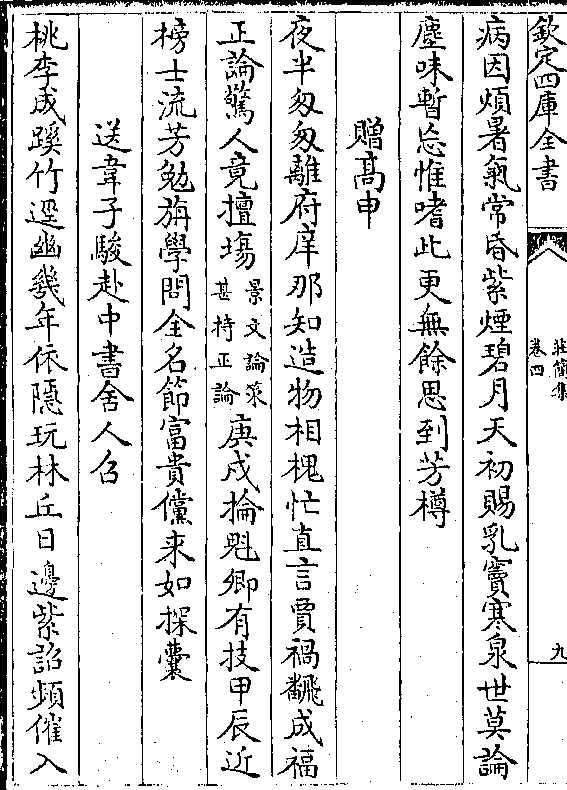 欽定四庫全書
莊簡集
卷四
九
病因煩暑氣常昏紫煙碧月天初賜乳竇寒泉世莫論
塵味暫忘惟嗜此更無餘思到芳樽
贈髙申
夜半匆匆離府庠那知造物相槐忙直言賈禍飜成福
正論驚人竟擅塲景文論策甚持正論庚戌掄魁卿有技甲辰近
榜士流芳勉旃學問全名節富貴儻来如探囊
送韋子駿赴中書舍人召
桃李成蹊竹逕幽幾年依隠玩林丘日邊紫詔頻催入